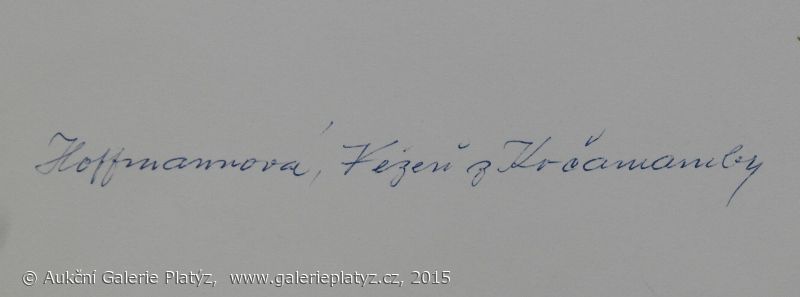 Hoffmannová, Vězeň z Kočamamby
© Aukční Galerie Platýz, www.galerieplatyz.cz, 2015